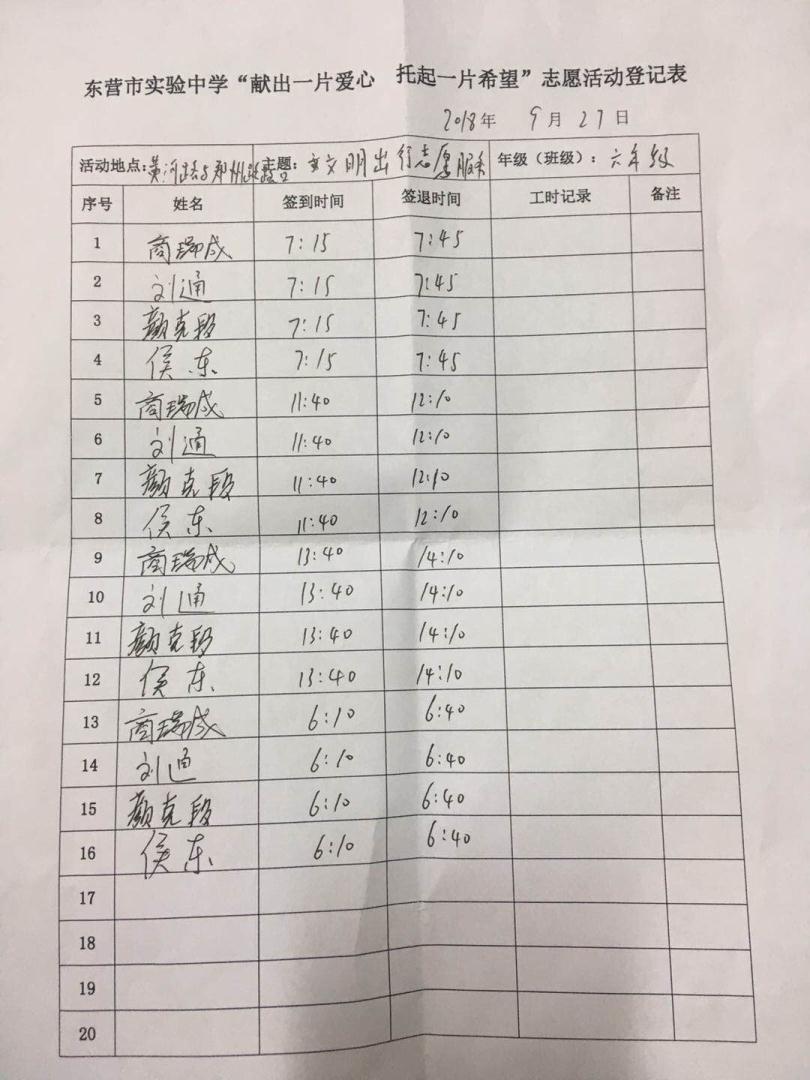 东营市实验中学“献出一片爱心 托起一片希望”志愿活动登记表
2018年 9月27日
活动地点：黄河路与郑州路路口 主题：文明出行志愿服务 年级（班级）：六年级
序号 姓名 签到时间 签退时间 工时记录 备注
1 商瑞成 7:15 7:45
2 刘通 7:15 7:45
3 颜克段 7:15 7:45
4 侯东 7:15 7:45
5 商瑞成 11:40 12:10
6 刘通 11:40 12:10
7 颜克段 11:40 12:10
8 侯东 11:40 12:10
9 商瑞成 13:40 14:10
10 刘通 13:40 14:10
11 颜克段 13:40 14:10
12 侯东 13:40 14:10
13 商瑞成 6:10 6:40
14 刘通 6:10 6:40
15 颜克段 6:10 6:40
16 侯东 6:10 6:40
17
18
19
20